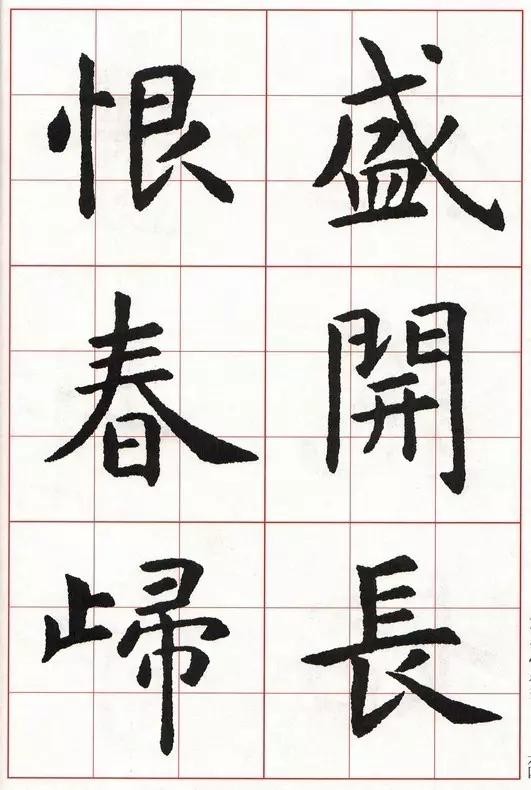 盛開長
恨春歸